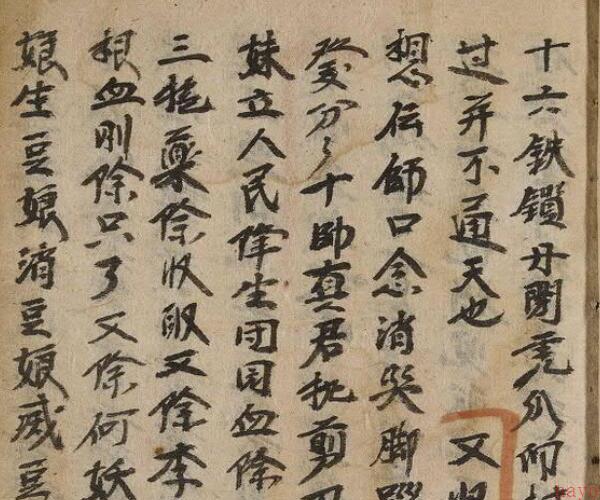 十六铁鎖丹閉
过并不通天也 又
想伝師口念消 脚
癸亥分〻十帥真君执剪刀
妹立人民降生团园血除
三 藥除收取又除李
根血刚除只了又除何妖
娘生豆娘消豆娘威豆